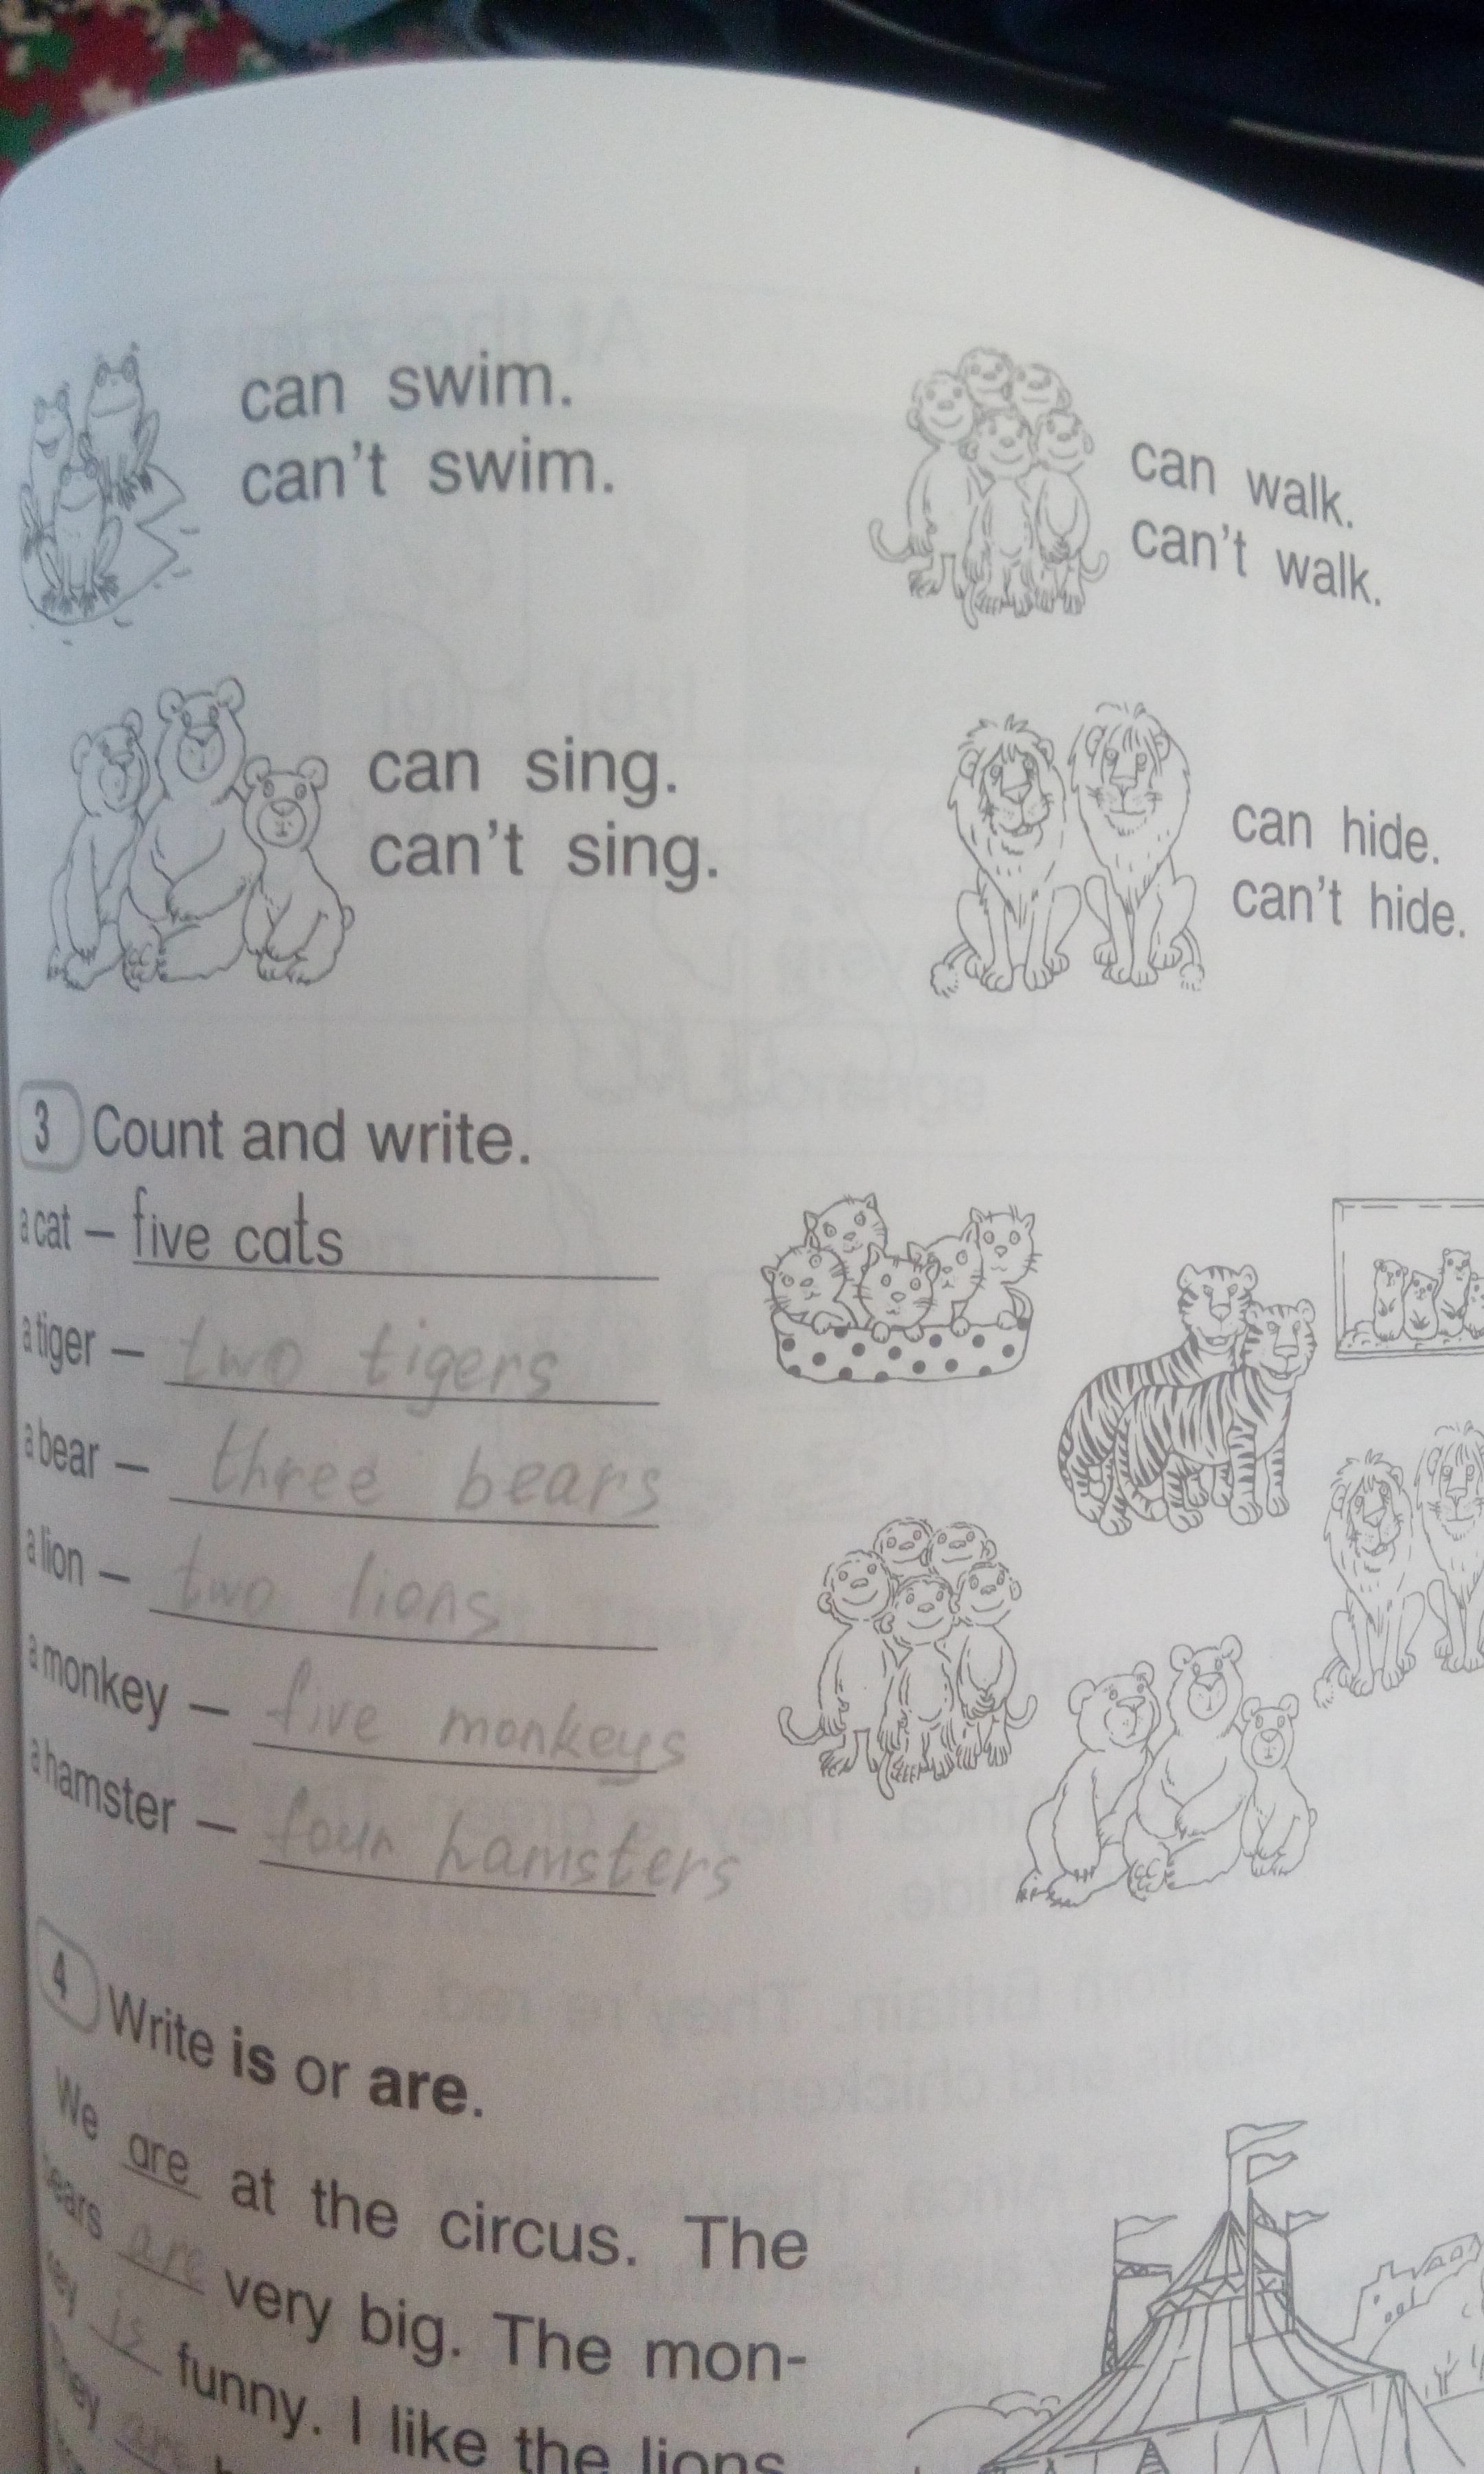 can swim.
can't swim.
can walk.
can't walk.
can sing.
can't sing.
can hide.
can't hide.
3 Count and write.
a cat – five cats
a tiger – two tigers
a bear – three bears
a lion – two lions
a monkey – five monkeys
a hamster – four hamsters
4 Write is or are.
We are at the circus. The
ears are very big. The mon-
key is funny. I like the lions
are